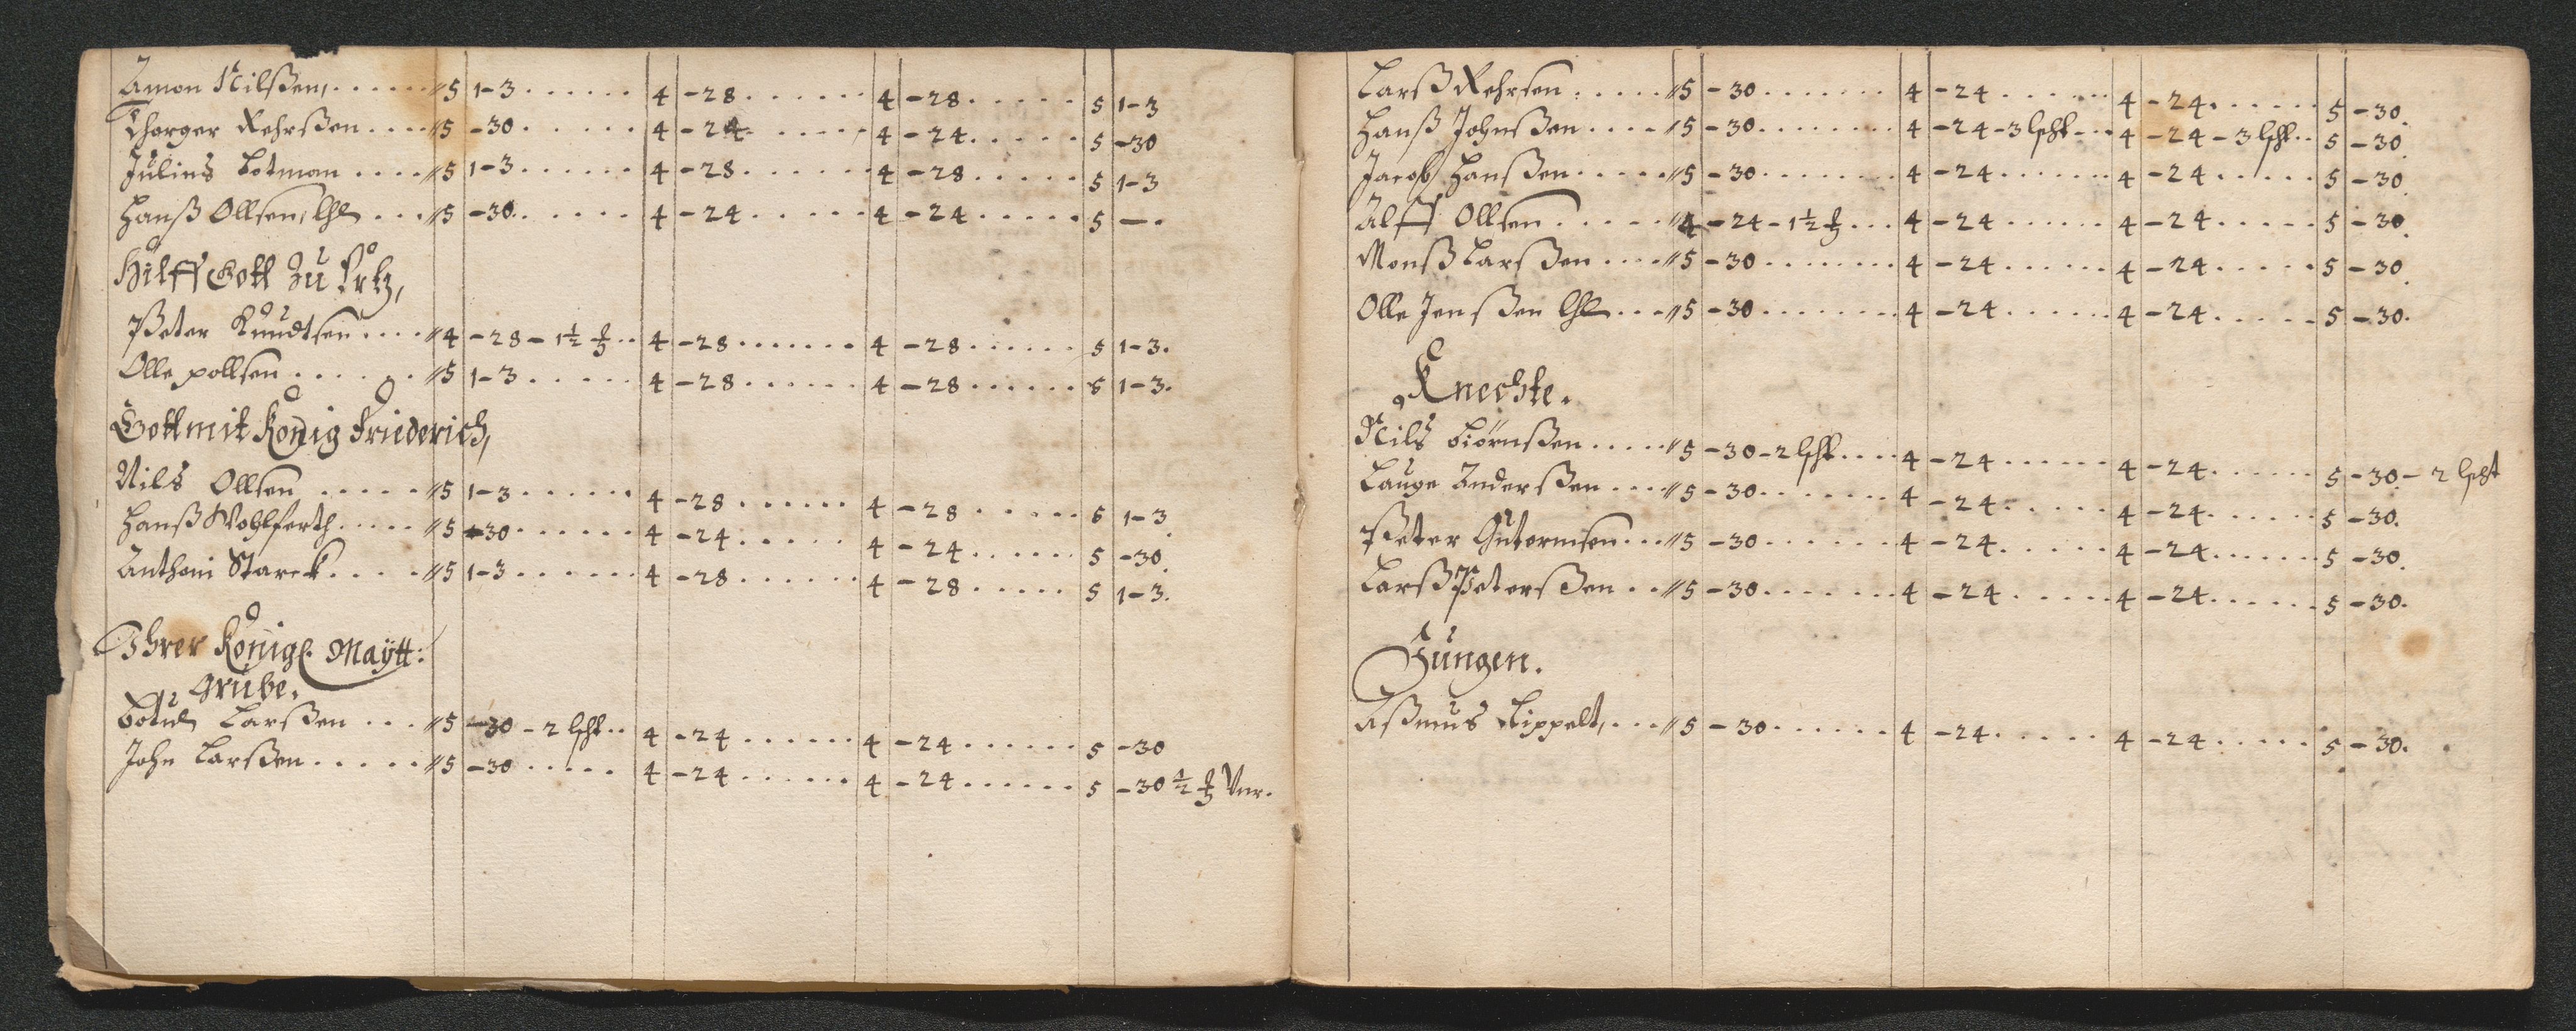 Amon Nilßen, ...... // 5 1-3 ...... 4 -28 ...... 4 -28 ..... 5 1-3
Thorger Rehrßen .... // 5 -30 ...... 4 -24 ...... 4 -24 ..... 5 -30
Julius Botman .... // 5 1-3 ...... 4 -28 ...... 4 -28 ..... 5 1-3
Hanß Ollsen, lhl ... // 5 -30 ...... 4 -24 ...... 4 -24 ..... 5 —.
Hilff Gott Zu
Peter Knudtsen .... // 4 -28 - 1½ ß .. 4 -28 ....... 4 -28 ...... 5 1-3.
Olle pollsen ...... // 5 1-3 ..... 4 -28 ...... 4 -28 ...... 5 1-3.
Gott mit König Friederich,
Nils Ollsen ..... // 5 1-3 ...... 4 -28 ...... 4 -28 ..... 5 1-3
Hanß Wohlferth ..... // 5 -30 ...... 4 -24 ..... 4 -24 ...... 5 -30.
Anthoni Starck .... // 5 1-3 ...... 4 -28 ...... 4 -28 ..... 5 1-3.
Ihrer Königl. Maÿtt:
Grube.
Botul Larßen ... // 5 -30 - 2 lßht .. 4 -24 ...... 4 -24 ...... 5 -30
John Larßen ..... // 5 -30 ..... 4 -24 ...... 4 -24 ...... 5 -30 ½ ß Ver.
Larß Rehrsen ..... // 5 -30 ....... 4 -24 ...... 4 -24 ...... 5 -30.
Hanß Johnßen .... // 5 -30 ........ 4 -24 - 3 lßht ... 4 -24 - 3 lßht .. 5 -30.
Jacob Hanßen ..... // 5 -30 ........ 4 -24 ....... 4 -24 ..... 5 -30.
Alff Ollsen ..... // 4 -24 - 1½ ß ... 4 -24 ...... 4 -24 ..... 5 -30.
Monß Larßen .... // 5 -30 ........ 4 -24 ...... 4 -24 ..... 5 -30.
Olle Jenßen lhl ... // 5 -30 ........ 4 -24 ...... 4 -24 ..... 5 -30.
Knechte.
Nils Biörnßen ..... // 5 -30 - 2 lßht .... 4 -24 ...... 4 -24 ...... 5 -30. - 2 lßht
Lauge Anderßen .... // 5 -30 ....... 4 -24 ..... 4 -24 ...... 5 -30.
Peter Gutormsen ... // 5 -30 ...... 4 -24 ..... 4 -24 ...... 5 -30.
Larß Peterßen .. // 5 -30 ....... 4 -24 ..... 4 -24 ...... 5 -30.
Jungen.
Aßmus Lippelt, ... // 5 -30 ...... 4 -24 ..... 4 -24 ..... 5 -30.